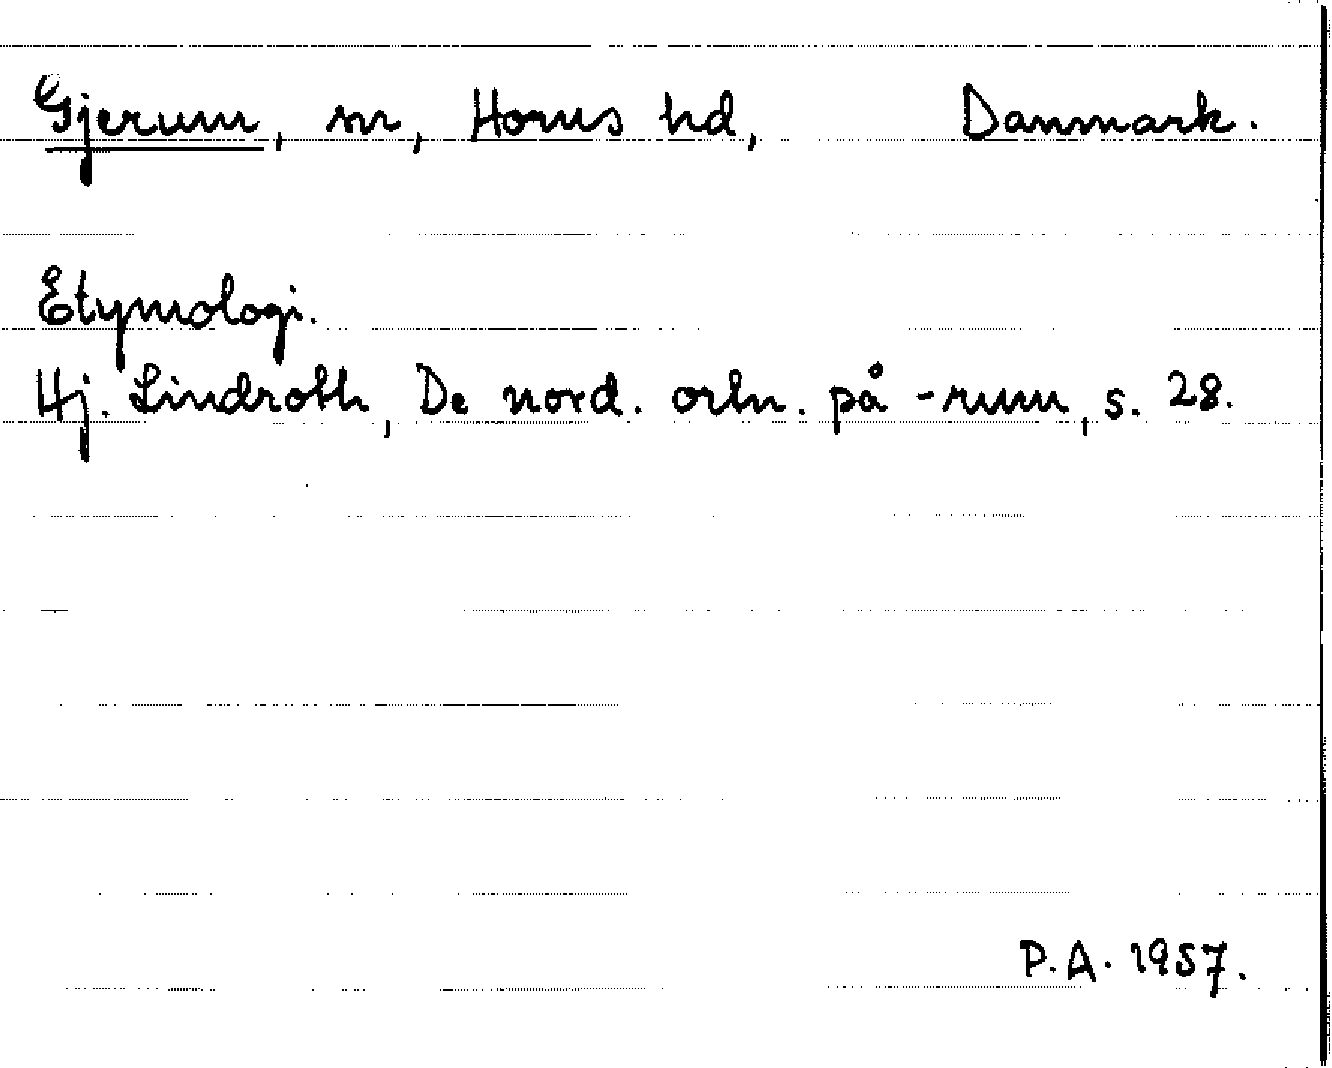 Gjerum, sn, Horns hd, Danmark.
Etymologi.
Hj. Lindroth, De nord. ortn. på -rum, s. 28.
P.A. 1957.